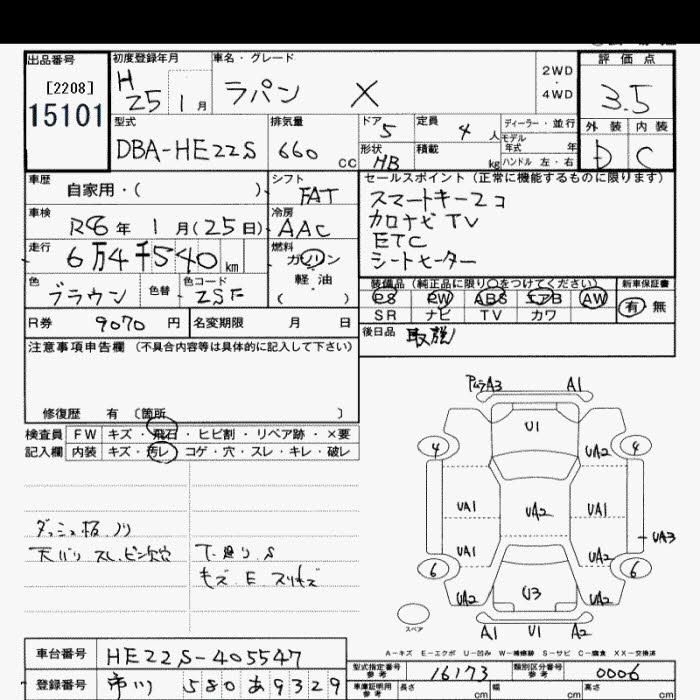 出品番号
[2208]
15101
初度登録年月
H
25 1 月
車名・グレード
ラパン X
2WD
・
4WD
評価点
3.5
外装 内装
D C
型式
DBA-HE22S
排気量
660 cc
ドア 5
定員 4 人
形状 HB
積載 kg
ディーラー・並行
モデル年式 年
ハンドル 左・右
車歴
自家用・( )
シフト
FAT
車検
R6 年 1 月(25日)
冷房
AAC
走行
6万4千540 km
燃料
ガソリン
軽油
( )
色
ブラウン
色替
色コード
ZSF
R券 9070 円
名変期限 月 日
セールスポイント(正常に機能するものに限ります)
スマートキー2コ
カロナビTV
ETC
シートヒーター
装備品(純正品に限り○をつけてください)
PS PW ABS エアB AW
SR ナビ TV カワ
新車保証書
有・無
後日品
取説
注意事項申告欄(不具合内容等は具体的に記入して下さい)
修復歴 有〔箇所 〕
検査員 FW キズ・飛石・ヒビ割・リペア跡・×要
記入欄 内装 キズ・汚レ・コゲ・穴・スレ・キレ・破レ
ダッシュ板ノリ
天バリ スレ、ピン穴
下廻り S
キズ E スリキズ
A3 A1
U1
4 UA2 4
UA1 UA2 UA1
UA3
UA1 UA2
6 6
UA2 U3 UA2
スペア
A1 U1 A2
A-キズ E-エクボ U-凹み W-補修跡 S-サビ C-腐食 XX-交換済
車台番号 HE22S-405547
登録番号 市川 580 あ 9329
型式指定番号 参考 16173
類別区分番号 参考 0006
車庫証明用 参考
長さ cm
幅 cm
高さ cm